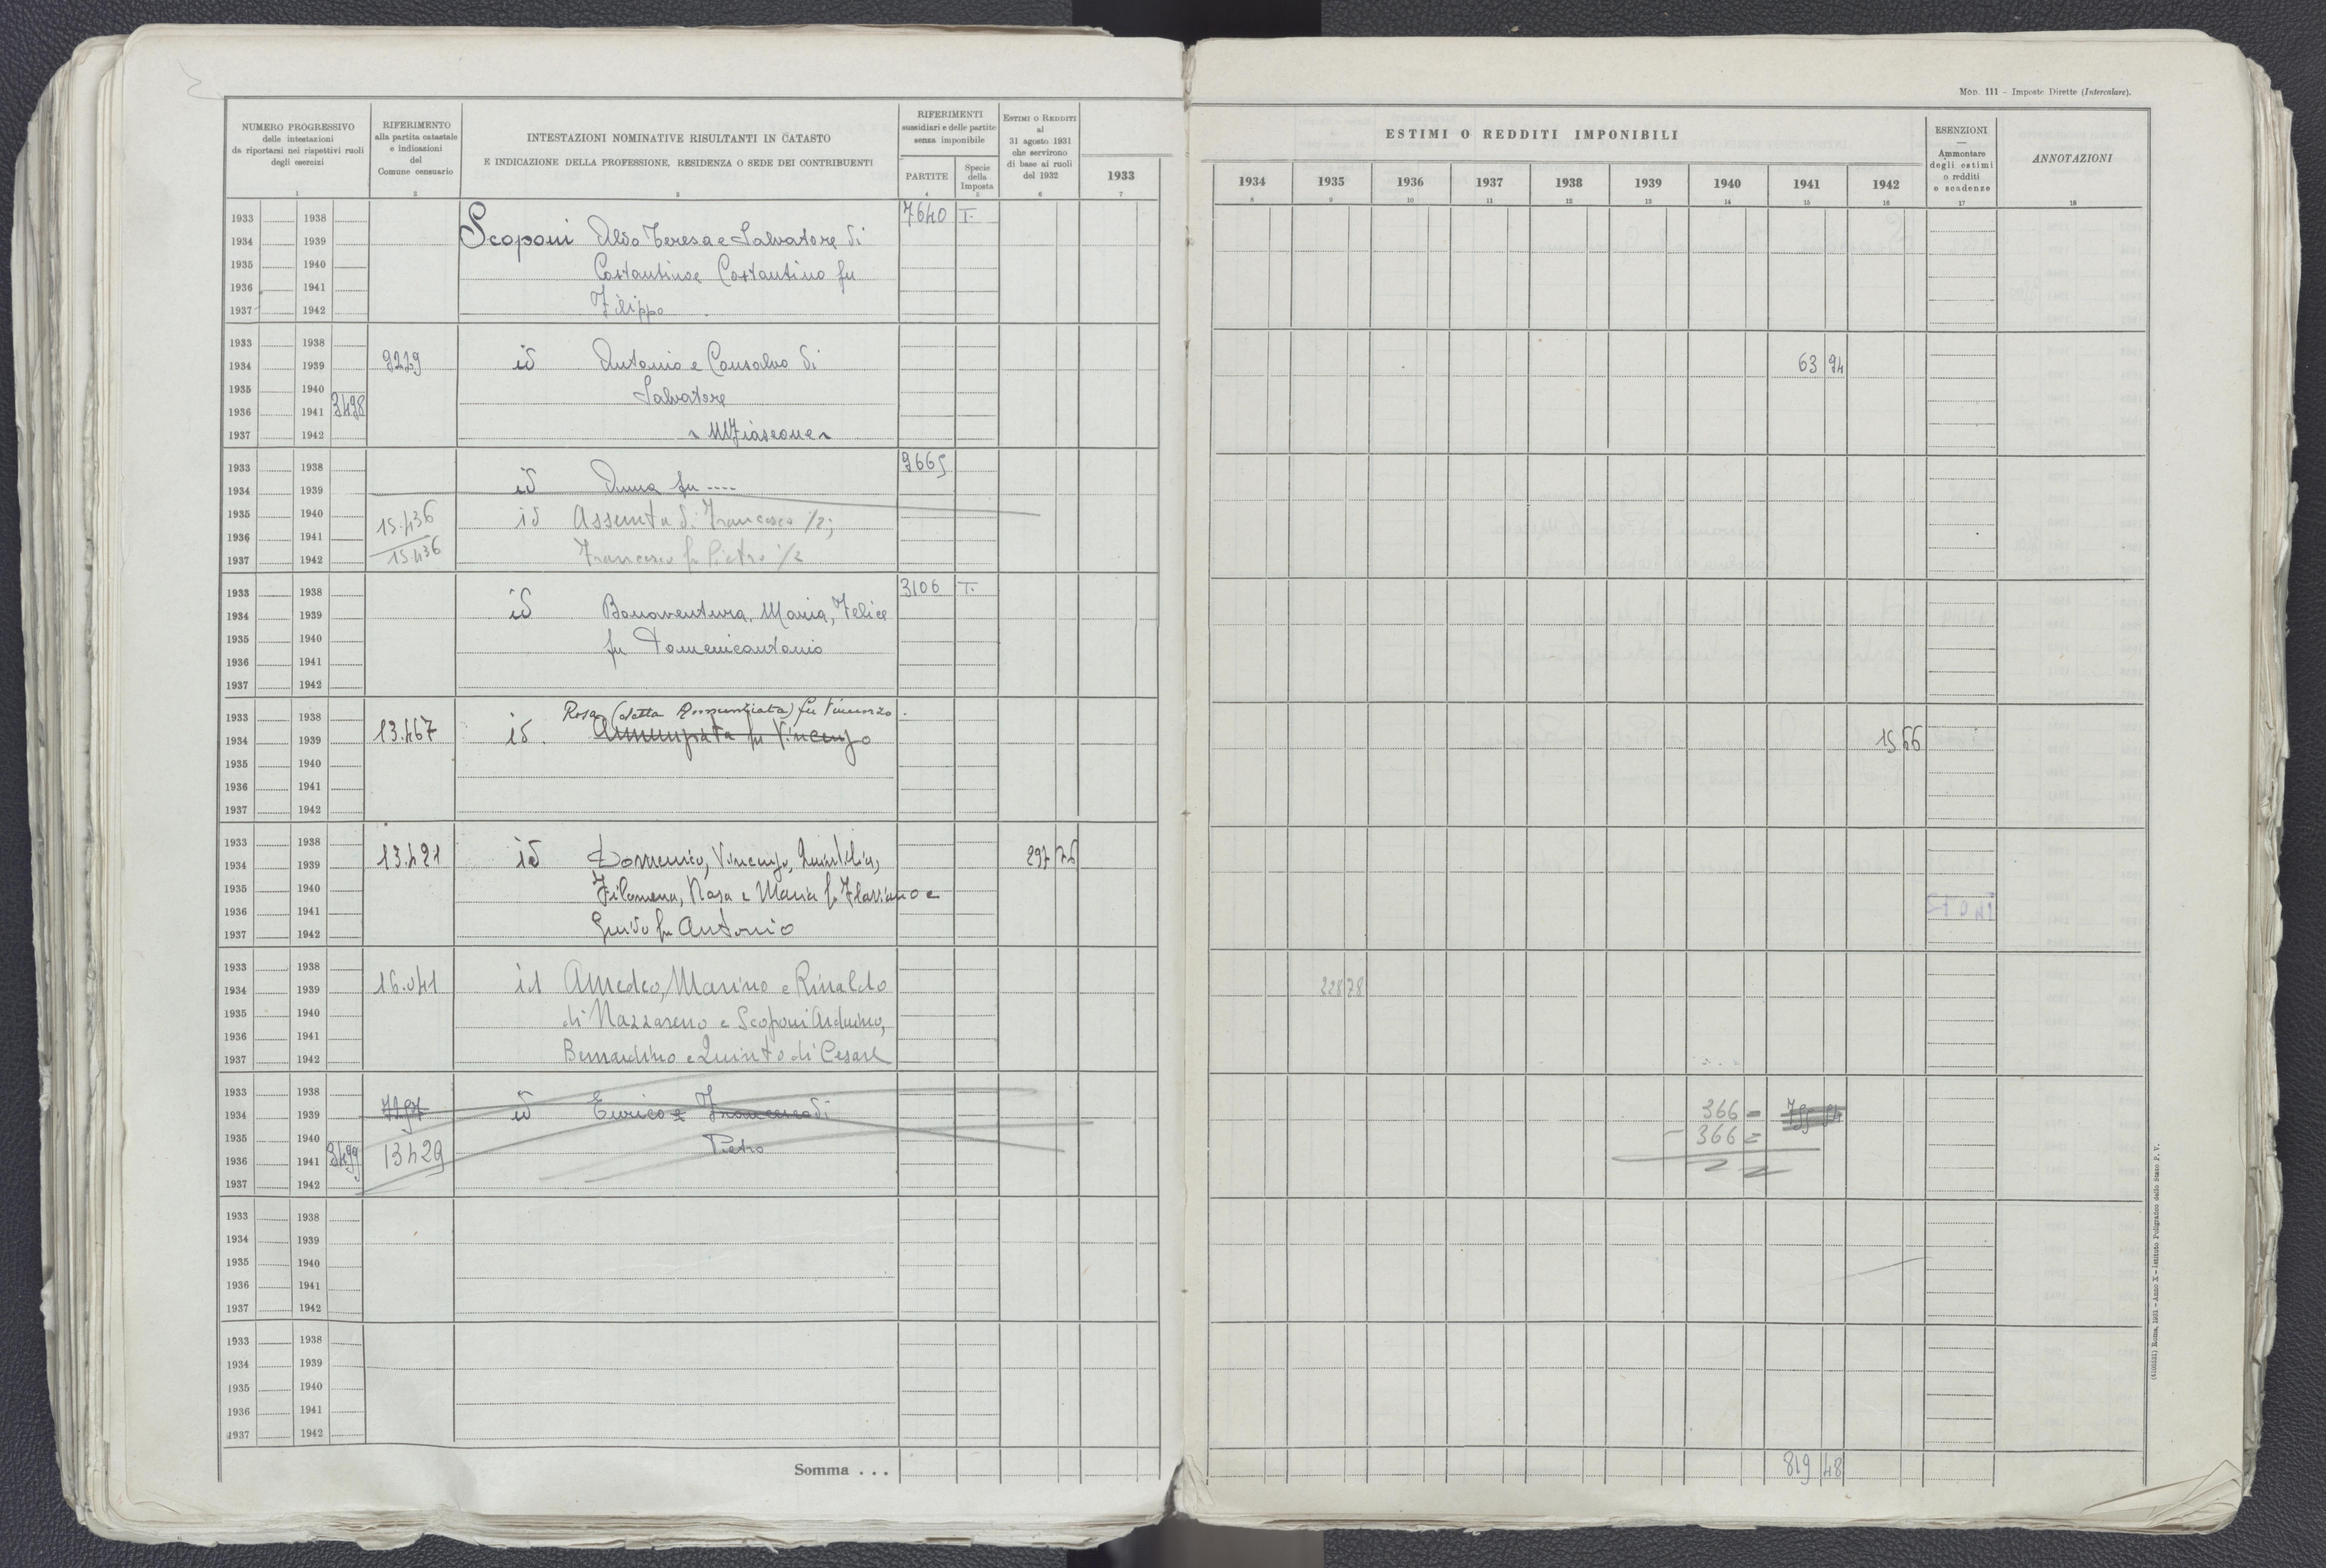 Mod. 111 – Imposte Dirette (Intercalare).
NUMERO PROGRESSIVO
delle intestazioni
da riportarsi nei rispettivi ruoli
degli esercizi
1
RIFERIMENTO
alla partita catastale
e indicazioni
del
Comune censuario
2
INTESTAZIONI NOMINATIVE RISULTANTI IN CATASTO
E INDICAZIONE DELLA PROFESSIONE, RESIDENZA O SEDE DEI CONTRIBUENTI
3
RIFERIMENTI
sussidiari e delle partite
senza imponibile
PARTITE
4
Specie
della
Imposta
5
ESTIMI O REDDITI
al
31 agosto 1931
che servirono
di base ai ruoli
del 1932
6
1933
7
ESTIMI O REDDITI IMPONIBILI
1934 1935 1936 1937 1938 1939 1940 1941 1942
8 9 10 11 12 13 14 15 16
ESENZIONI
—
Ammontare
degli estimi
o redditi
e scadenze
17
ANNOTAZIONI
18
1933 1938 7640 T.
1934 1939 Scoponi Aldo Teresa e Salvatore di
1935 1940 Costantino e Costantino fu
1936 1941
1937 1942 Filippo
1933 1938
1934 1939 9229 id Antonio e Consalvo di 63 94
1935 1940 Salvatore
1936 1941 3498
1937 1942 M/Fiascone
1933 1938 9665
1934 1939 id Anna fu ----
1935 1940 15.436 id Assunta di Francesco 1/2;
1936 1941
1937 1942 15436 Francesco fu Pietro 1/2
1933 1938 3106 T.
1934 1939 id Bonaventura, Maria, Felice
1935 1940 fu Domenicantonio
1936 1941
1937 1942
1933 1938 Rosa (detta Annunziata) fu Vincenzo
1934 1939 13.467 id. Annunziata fu Vincenzo 15 66
1935 1940
1936 1941
1937 1942
1933 1938
1934 1939 13.421 id Domenico, Vincenzo, Quintilia, 297 76
1935 1940 Filomena, Rosa e Maria fu Flaviano e
1936 1941
1937 1942 Guido fu Antonio
1933 1938
1934 1939 16.041 id Amedeo, Marino e Rinaldo 228 78
1935 1940 di Nazzareno e Scoponi Arduino,
1936 1941
1937 1942 Bernardino e Quinto di Cesare
1933 1938
1934 1939 7297 id Enrico e Francesco di 366 =
1935 1940 Pietro – 366 =
1936 1941 3499 13429
1937 1942
1933 1938
1934 1939
1935 1940
1936 1941
1937 1942
1933 1938
1934 1939
1935 1940
1936 1941
1937 1942
Somma . . . 819 48
(4103531) Roma, 1931 – Anno X – Istituto Poligrafico dello Stato P. V.